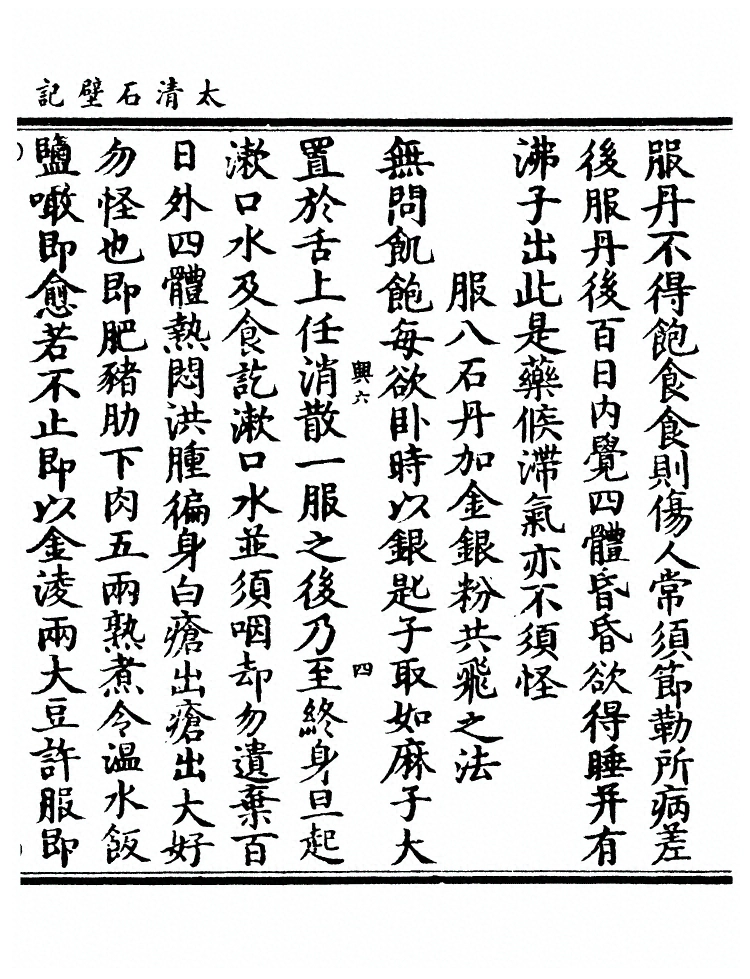 太清石壁記
服丹不得飽食食則傷人常須節勒所病差
後服丹後百日內覺四體昏昏欲得睡并有
沸子出此是藥候滯氣亦不須怪
服八石丹加金銀粉共飛之法
無問飢飽每欲卧時以銀匙子取如麻子大
興六
四
置於舌上任消散一服之後乃至終身旦起
漱口水及食訖漱口水並須咽却勿遺棄百
日外四體熱悶洪腫徧身白瘡出瘡出大好
勿怪也即肥豬肋下肉五兩熟煮令溫水飯
鹽噉即愈若不止即以金淩兩大豆許服即